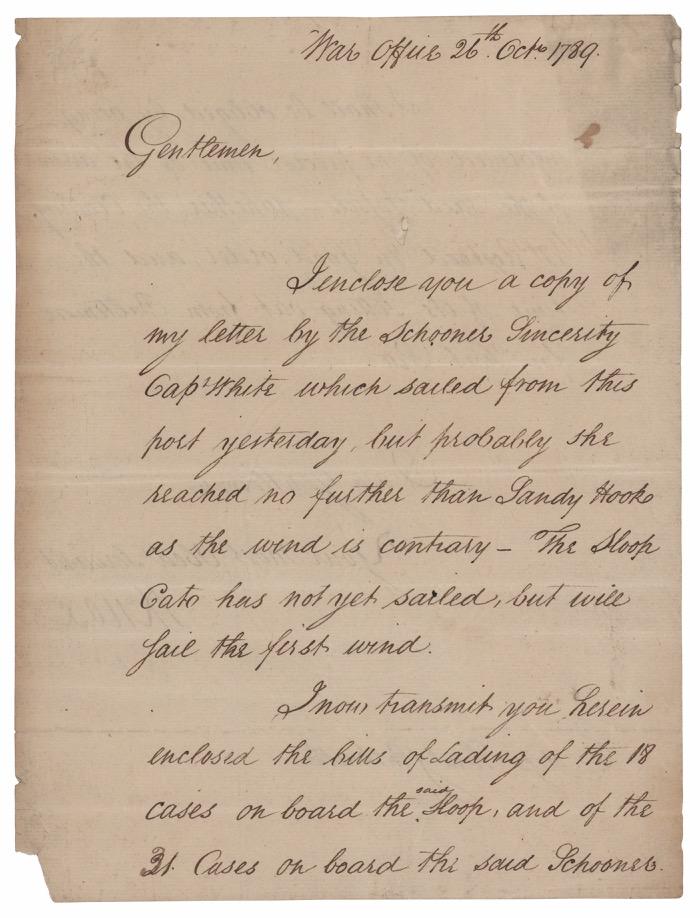 War Office 26th. Octo. 1789.
Gentlemen,
I enclose you a copy of
my letter by the Schooner Sincerity
Capt White which sailed from this
port yesterday, but probably she
reached no further than Sandy Hook
as the wind is contrary – The Sloop
Cato has not yet sailed, but will
sail the first wind.
I now transmit you herein
enclosed the bills of Lading of the 18
cases on board the said Sloop, and of the
31. Cases on board the said Schooner.